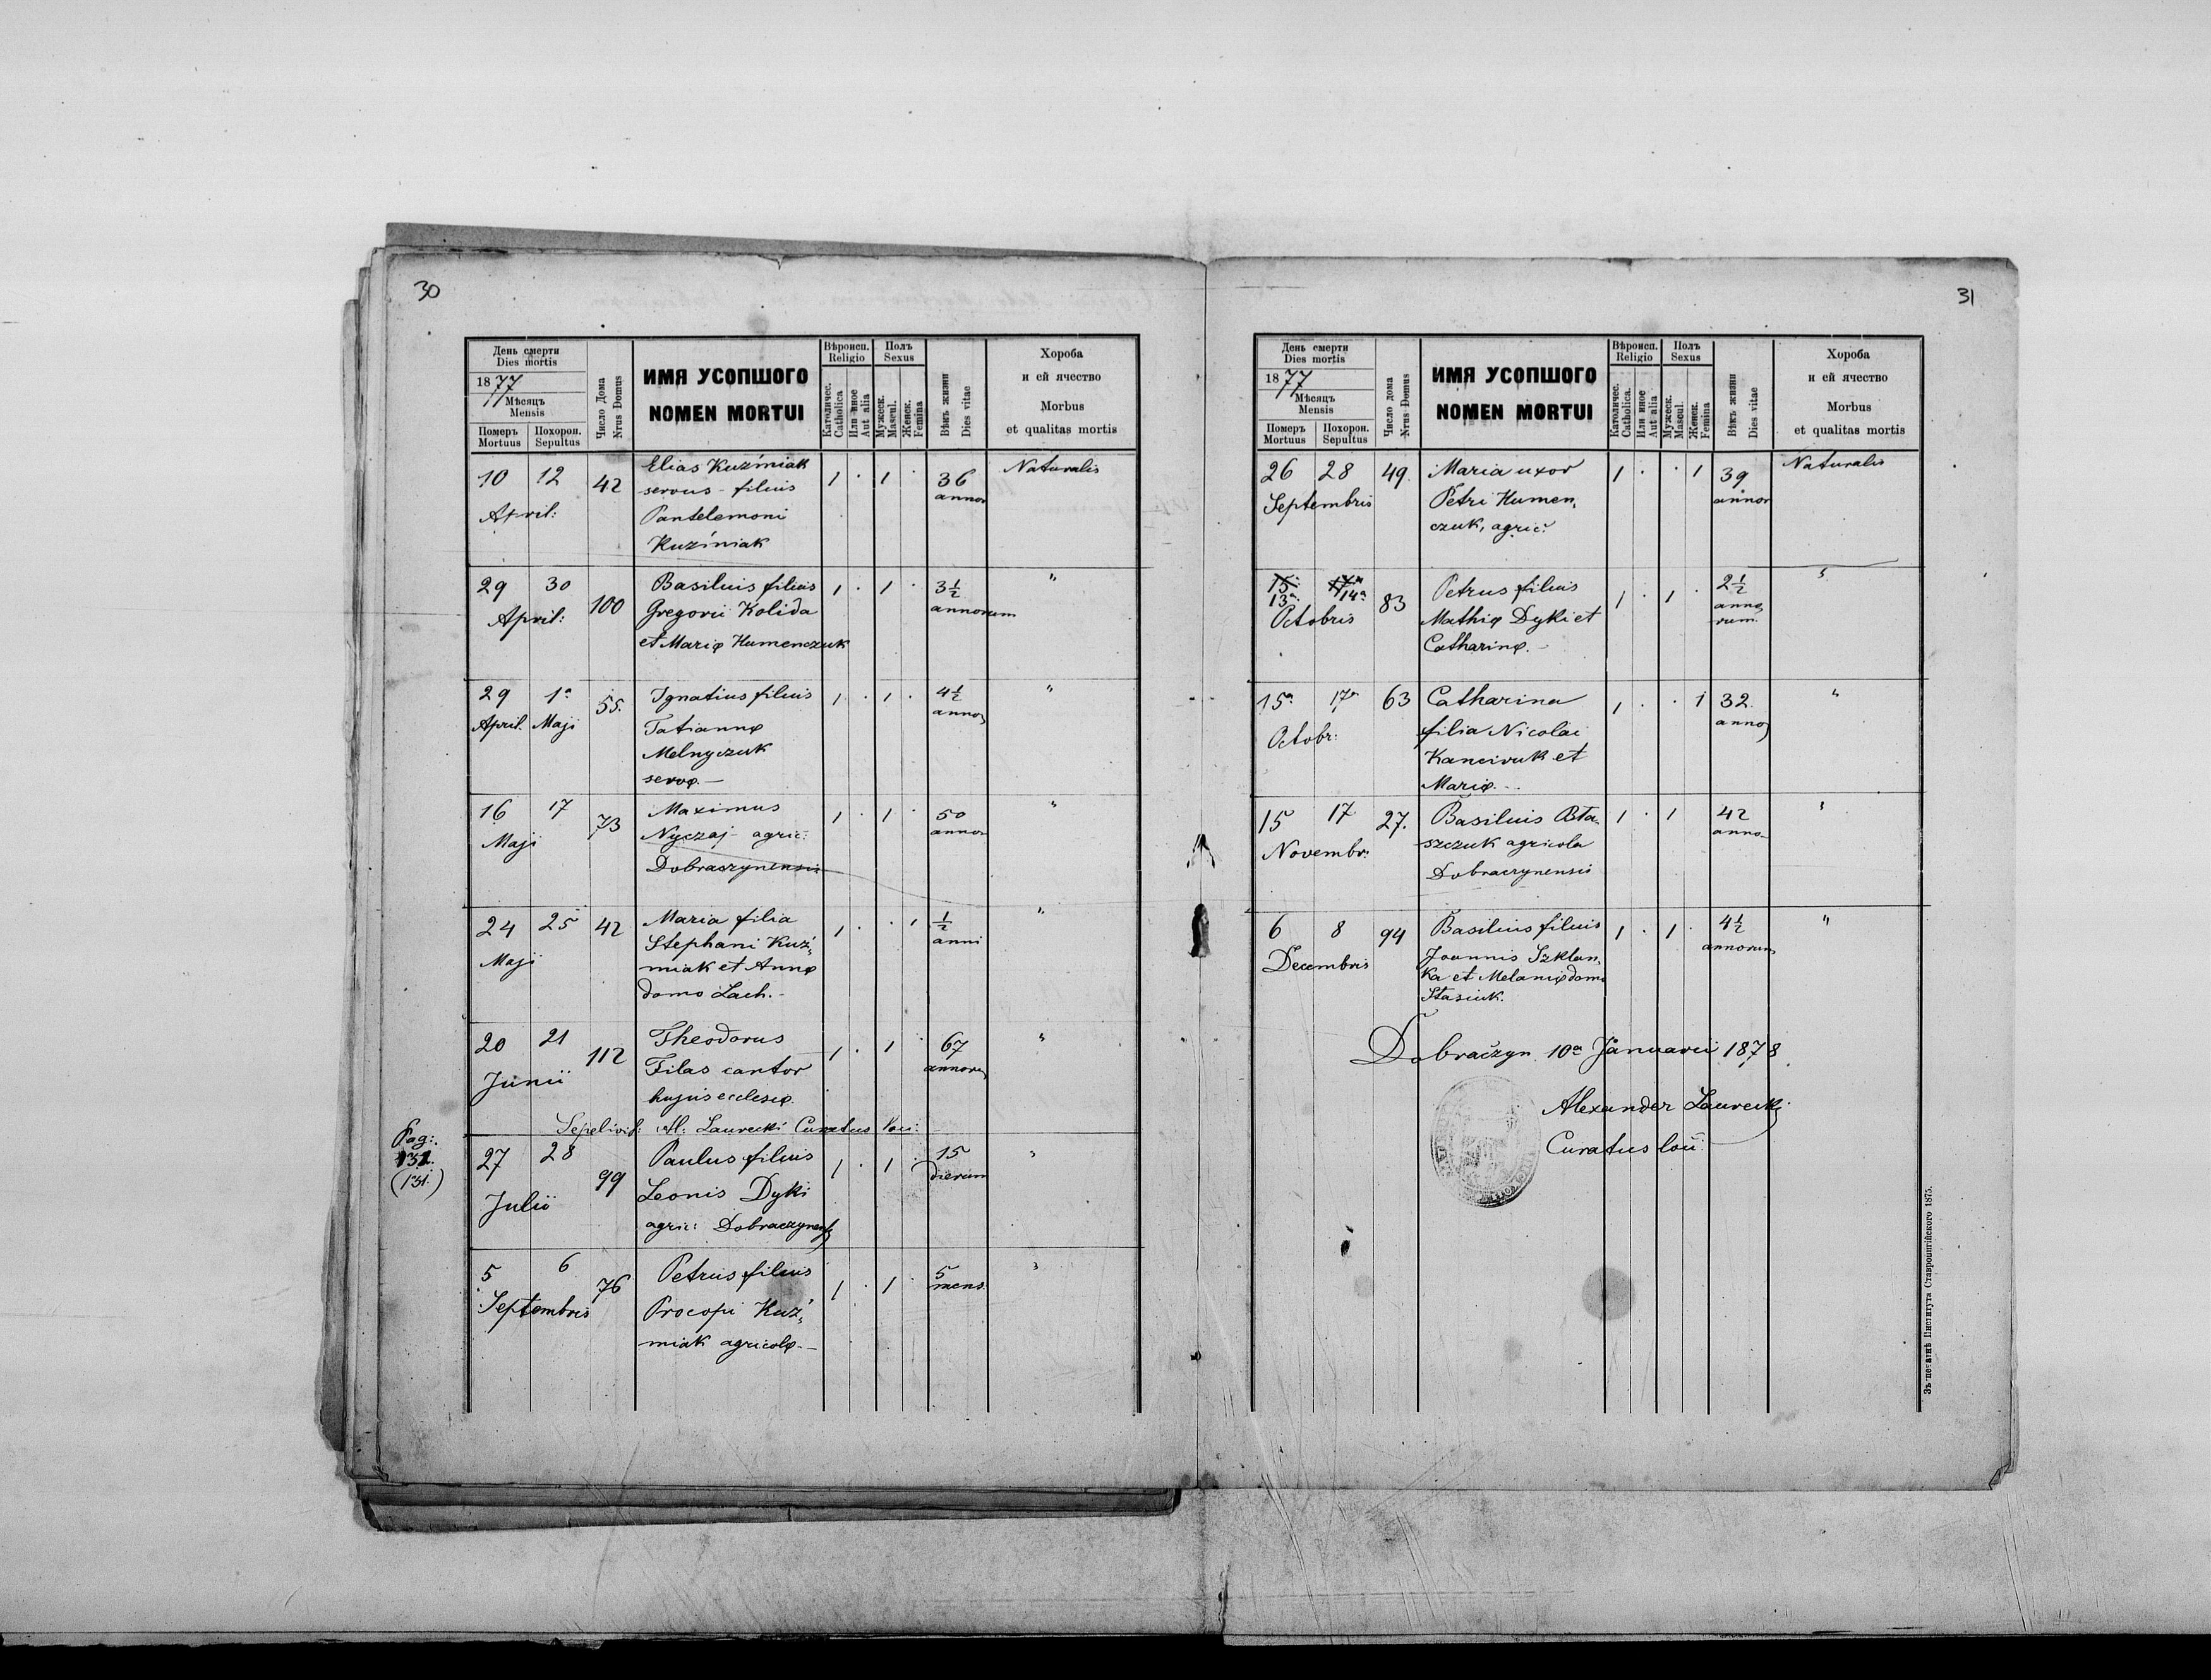 30
День смерти
Dies mortis
1877
Мѣсяць
Mensis
Померъ Похорон.
Mortuus Sepultus
Число Дома
Nrus Domus
ИМЯ УСОПШОГО
NOMEN MORTUI
Вѣроисп.
Religio
Католичес.
Catholica
Или иное
Aut alia
Полъ
Sexus
Мужеск.
Mascul.
Женск.
Femina
Вѣкъ жизни
Dies vitae
Хороба
и ей ячество
Morbus
et qualitas mortis
10 12 42 Elias Kuźmiak 1 . 1 . 36 Naturalis
April: servus - filius annor
Pantelemoni
Kuźmiak
29 30 100 Basilius filius 1 . 1 . 3½ "
April: Gregorii Kolida annorum
et Mariæ Humenczuk
29 1a 55. Ignatius filius 1 . 1 . 4½ "
April. Maji Tatiannæ anno
Melnyczuk
servæ. —
16 17 73 Maximus 1 . 1 . 50 "
Maji Nyczaj - agric: annor
Dobraczynensis
24 25 42 Maria filia 1 . . 1 ½ "
Maji Stephani Kuź- anni
miak et Annæ
domo Lach. -
20 21 112 Theodorus 1 . 1 67 "
Junii Filas cantor annoru
hujus ecclesiæ.
Sepelivit: Al: Laurecki Curatus loci:
Pag:.
131.
(131.)
27 28 99 Paulus filius 1 . 1 . 15 "
Julii Leonis Dyki dierum
agric: Dobraczynens
5 6 76 Petrus filius 1 . 1 . 5 "
Septembris Procopi Kuź- mens.
miak agricolæ. —
31
День смерти
Dies mortis
1877
Мѣсяць
Mensis
Померъ Похорон.
Mortuus Sepultus
Число дома
Nrus Domus
ИМЯ УСОПШОГО
NOMEN MORTUI
Вѣроисп.
Religio
Католичес.
Catholica.
Или иное
Aut alia
Полъ
Sexus
Мужеск.
Mascul.
Женск.
Femina
Вѣкъ жизни
Dies vitae
Хороба
и ей ячество
Morbus
et qualitas mortis
26 28 49. Maria uxor 1 . . 1 39 Naturalis
Septembris Petri Humen, annor
czuk, agric:
15a 17a Petrus filius 2½ "
13a 14a 83 Mathiæ Dyki et 1 . 1 . anno,
Octobris Catharinæ. - rum.
15a 17a 63 Catharina 1 . . 1 32 "
Octobr: filia Nicolai anno
Kanciruk et
Mariæ. -
15 17 27. Basilius Bła- 1 . 1 42 "
Novembr: szczuk agricola anno
Dobraczynensis
6 8 94 Basilius filius 1 . 1 . 4½ "
Decembris Joannis Szklan, annorum
ka et Melaniæ domo
Stasiuk.
Dobraczyn 10a Januarii 1878.
Alexander Laurecki
Curatus loci:
Зъ печатнѣ Института Ставропигійского 1875.